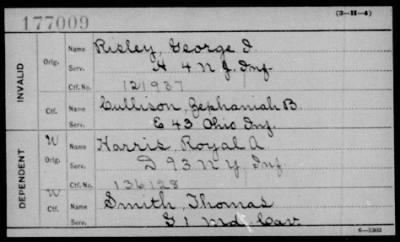 177009
(3-H-4)
INVALID
Orig.
Name Risley, George D.
Serv. H 4 N J. Inf.
Ctf. No. 121937
Ctf.
Name Cullison, Zephaniah B.
Serv. E 43 Ohio Inf.
DEPENDENT
W
Orig.
Name Harris, Royal A
Serv. D 93 N Y Inf
Ctf. No. 136128
W
Ctf.
Name Smith, Thomas
Serv. G 1 Md. Cav.